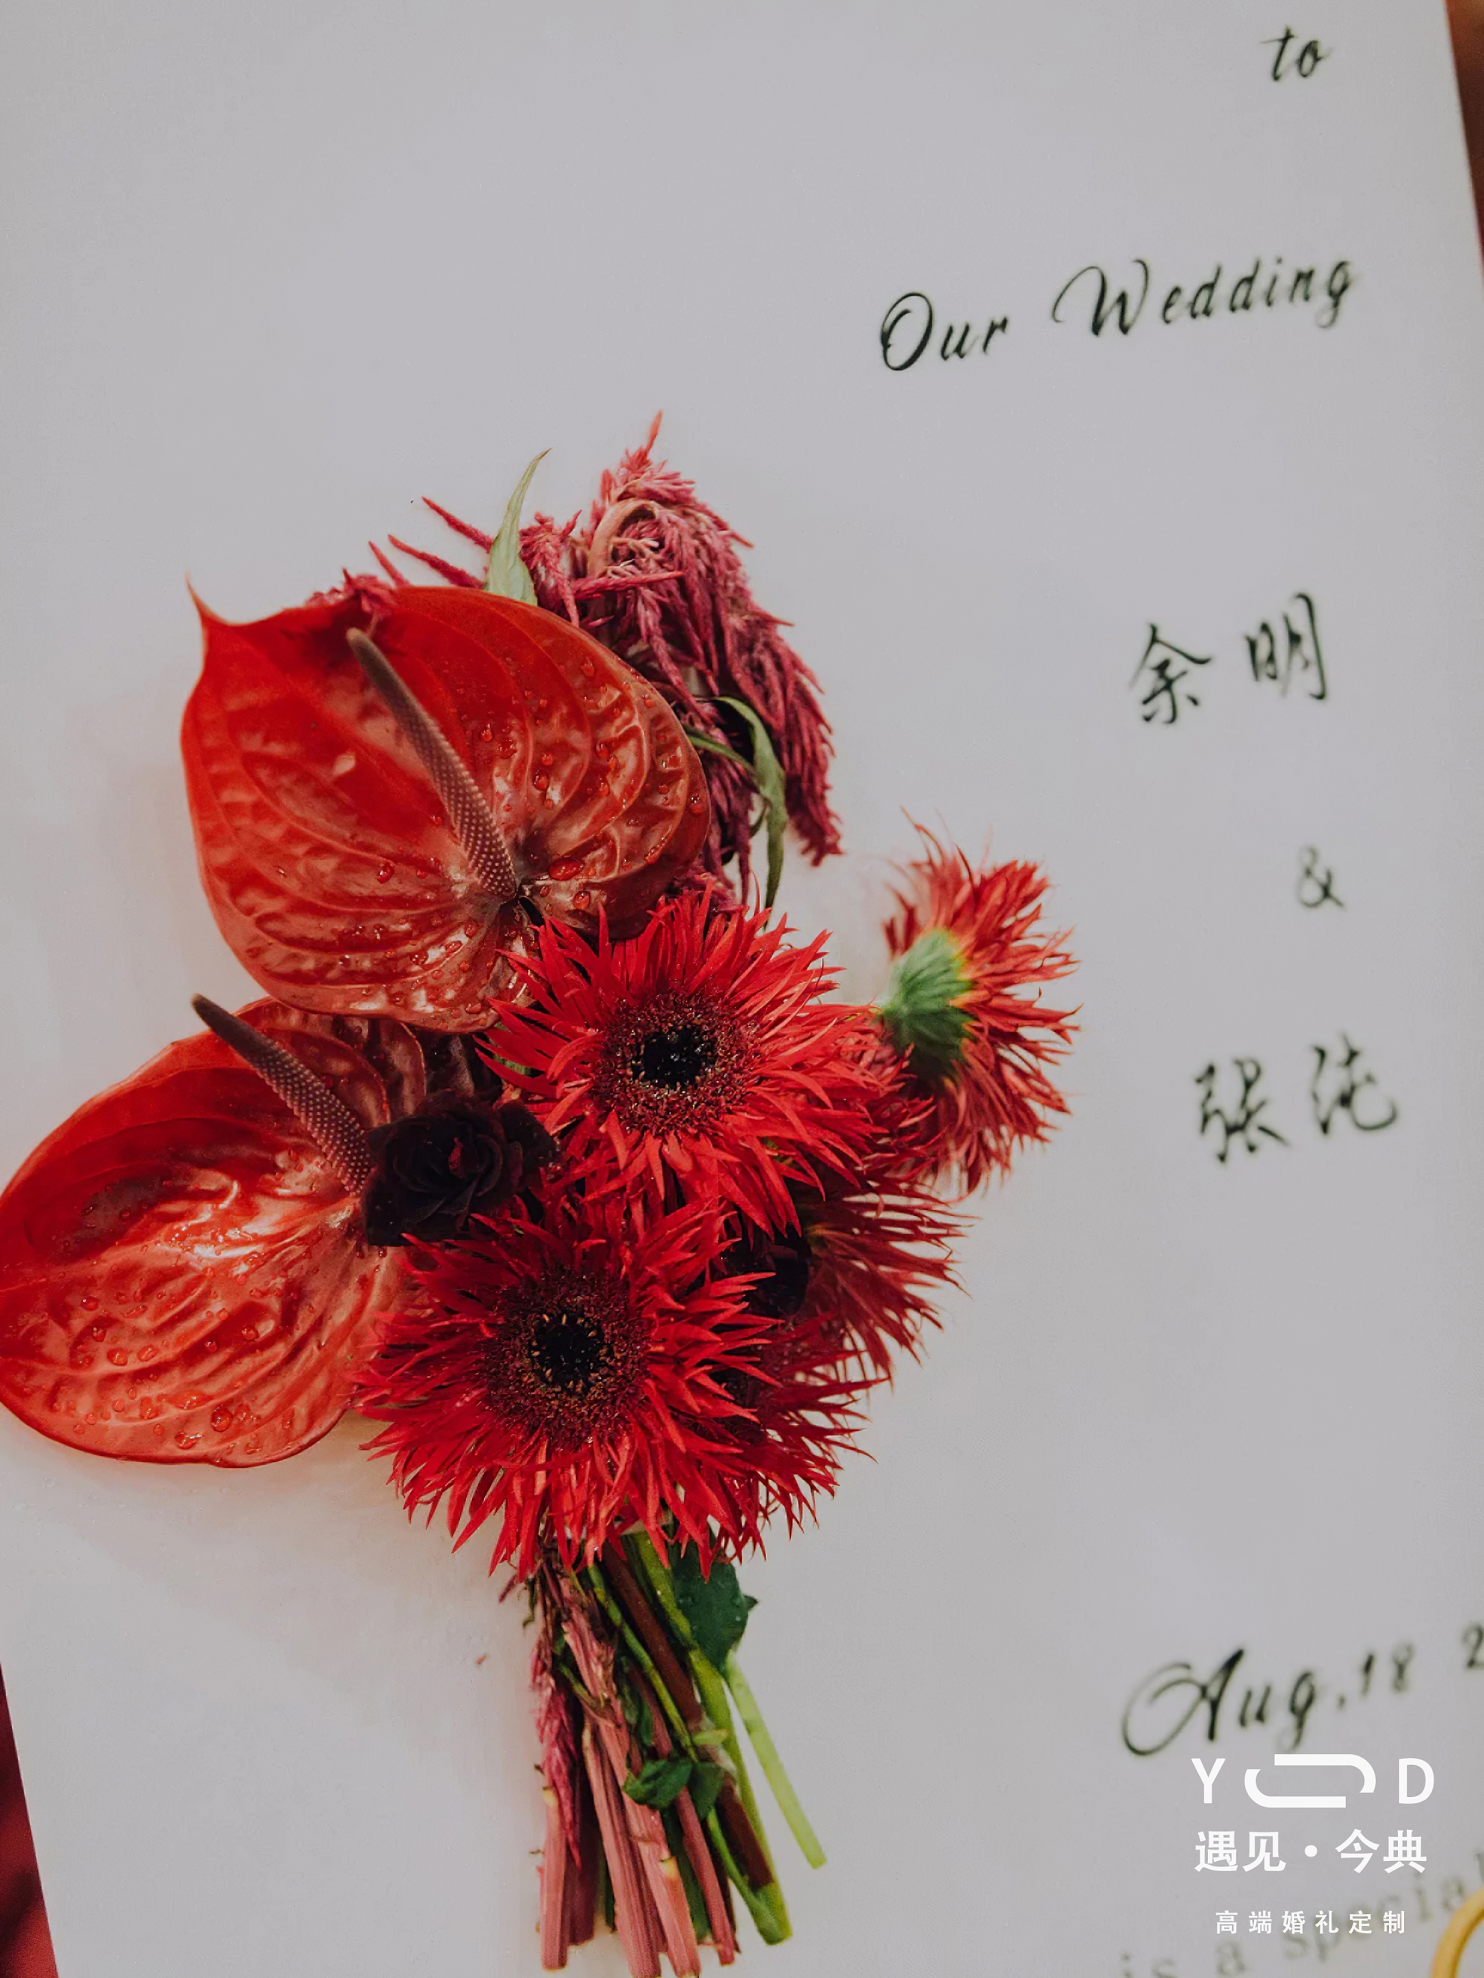 to
Our Wedding
余明
&
张沌
Aug.18
YD
遇见·今典
高端婚礼定制
is a special